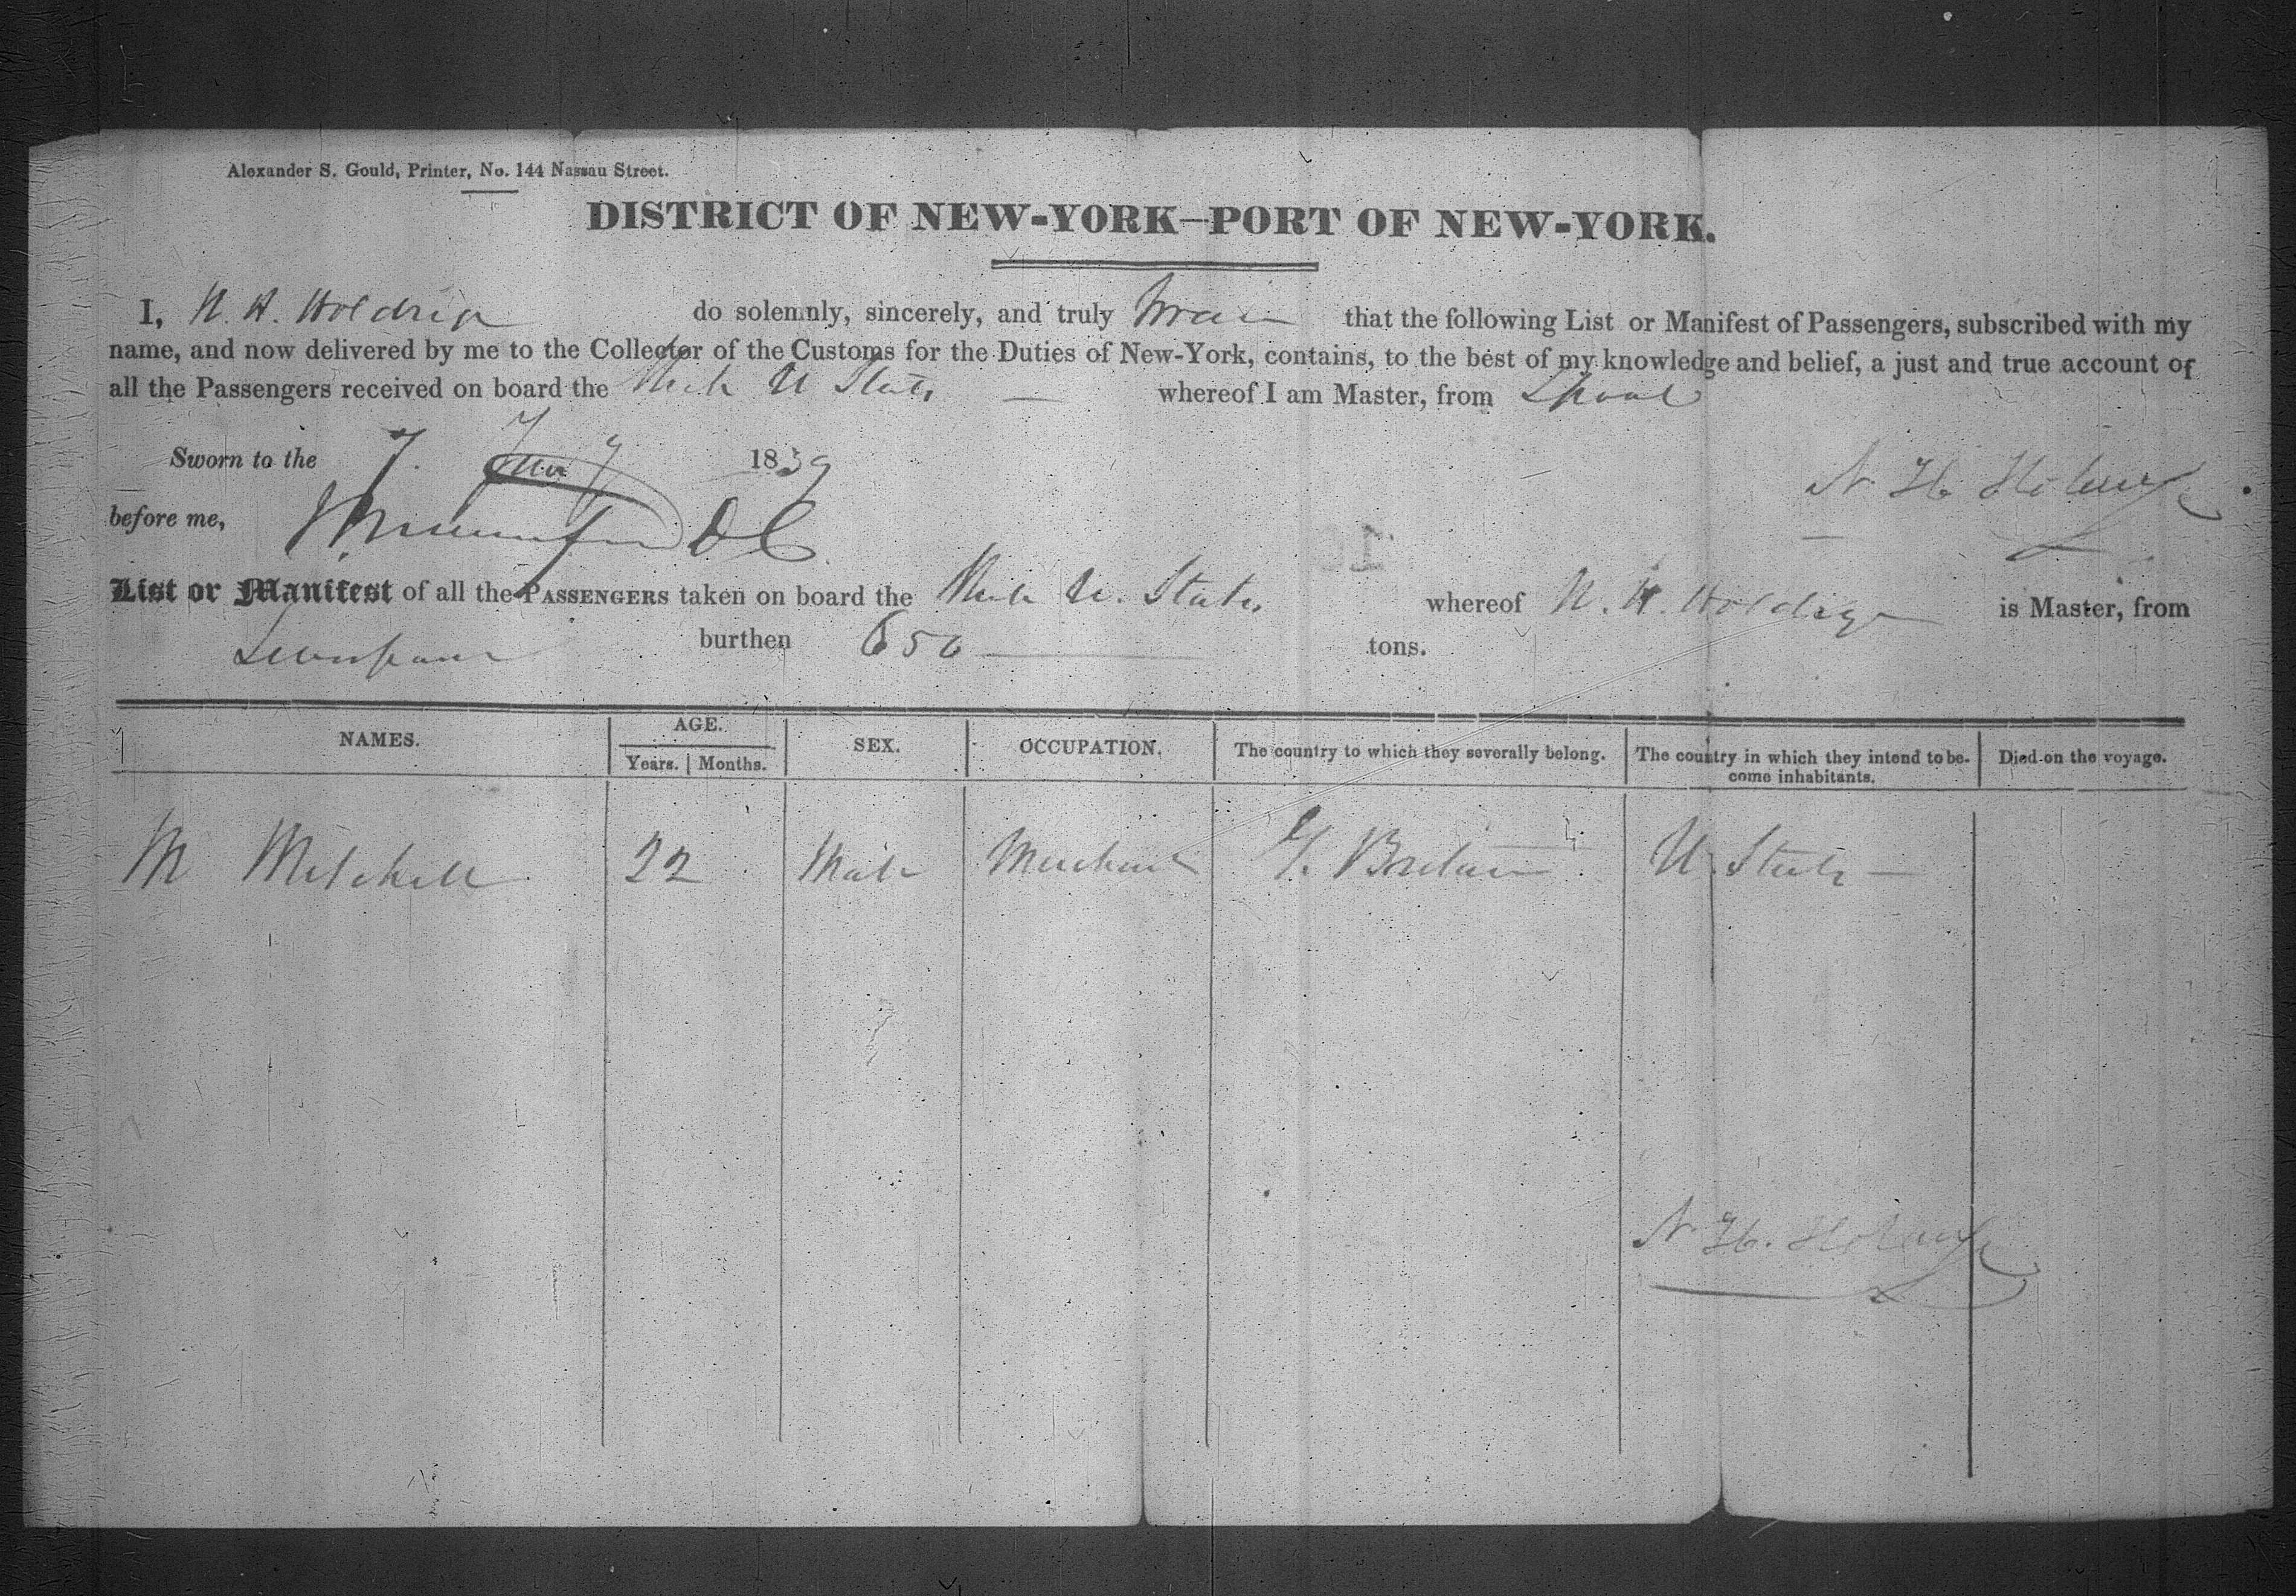 Alexander S. Gould, Printer, No. 144 Nassau Street.
DISTRICT OF NEW-YORK—PORT OF NEW-YORK.
I, N. H. Holdrige do solemnly, sincerely, and truly swear that the following List or Manifest of Passengers, subscribed with my
name, and now delivered by me to the Collector of the Customs for the Duties of New-York, contains, to the best of my knowledge and belief, a just and true account of
all the Passengers received on board the U States whereof I am Master, from Lpool
Sworn to the 7. 1839
N H Holdrige
before me, D C
List or Manifest of all the PASSENGERS taken on board the U. States whereof N. H. Holdrige is Master, from
Liverpool burthen 650 tons.
NAMES. AGE. SEX. OCCUPATION. The country to which they severally belong. The country in which they intend to be- Died on the voyage.
Years. Months. come inhabitants.
M Mitchell 22 Male Merchant G. Britain U. States
N H. Holdrige